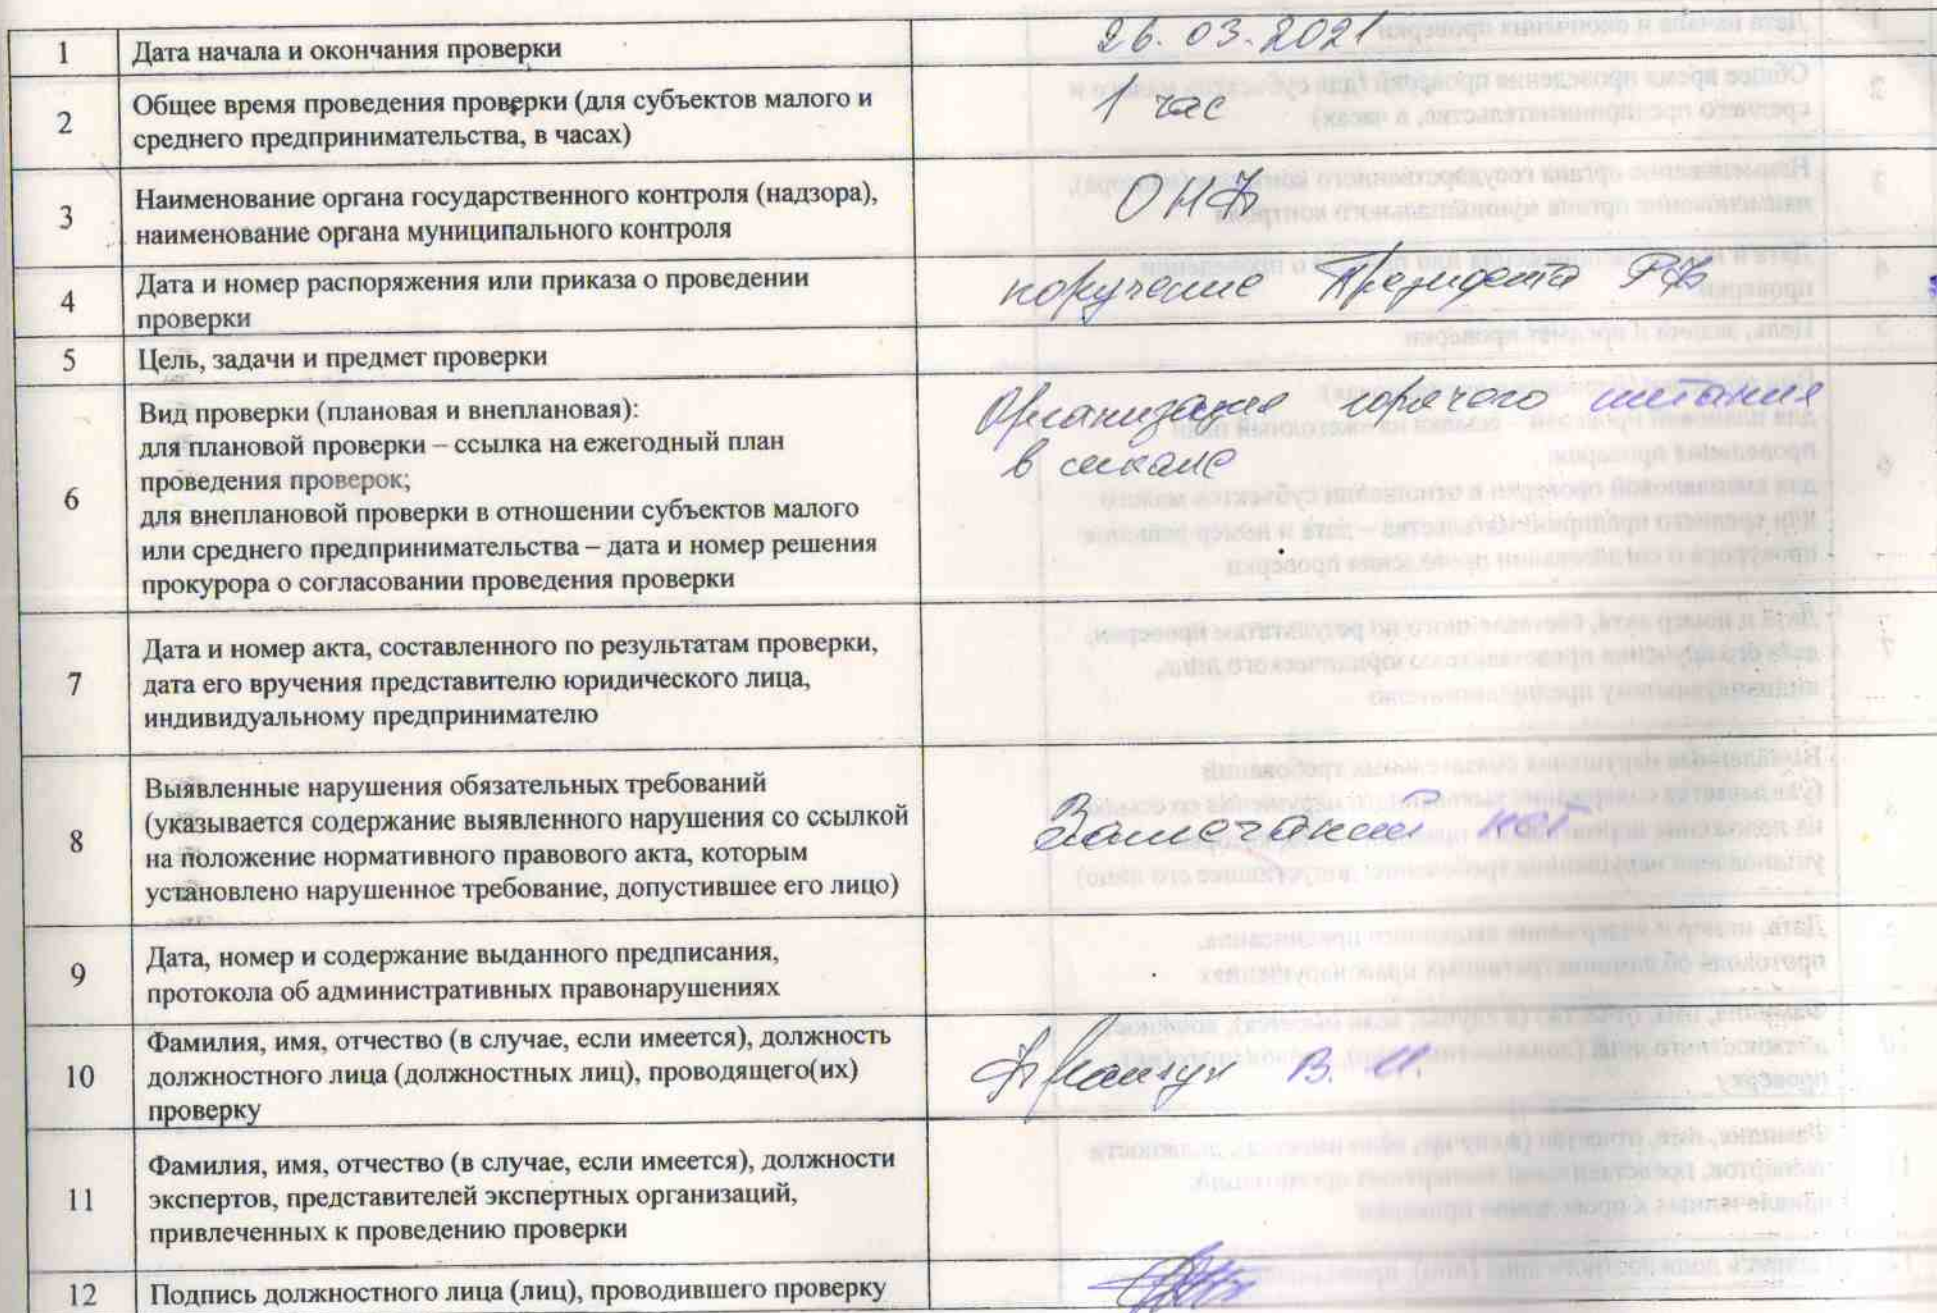 1 Дата начала и окончания проверки 26.03.2021
2 Общее время проведения проверки (для субъектов малого и
среднего предпринимательства, в часах) 1 час
3 Наименование органа государственного контроля (надзора),
наименование органа муниципального контроля ОНФ
4 Дата и номер распоряжения или приказа о проведении
проверки поручение Президента РФ
5 Цель, задачи и предмет проверки
6 Вид проверки (плановая и внеплановая):
для плановой проверки – ссылка на ежегодный план
проведения проверок;
для внеплановой проверки в отношении субъектов малого
или среднего предпринимательства – дата и номер решения
прокурора о согласовании проведения проверки
Организация горячего питания
в школе
7 Дата и номер акта, составленного по результатам проверки,
дата его вручения представителю юридического лица,
индивидуальному предпринимателю
8 Выявленные нарушения обязательных требований
(указывается содержание выявленного нарушения со ссылкой
на положение нормативного правового акта, которым
установлено нарушенное требование, допустившее его лицо)
Замечаний нет
9 Дата, номер и содержание выданного предписания,
протокола об административных правонарушениях
10 Фамилия, имя, отчество (в случае, если имеется), должность
должностного лица (должностных лиц), проводящего(их)
проверку
В. И.
11 Фамилия, имя, отчество (в случае, если имеется), должности
экспертов, представителей экспертных организаций,
привлеченных к проведению проверки
12 Подпись должностного лица (лиц), проводившего проверку